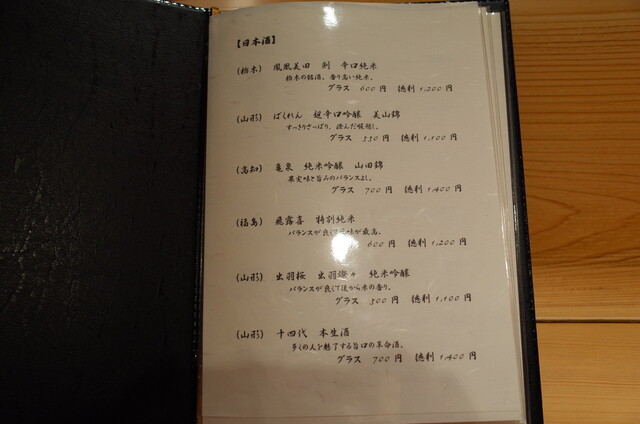 【日本酒】
(栃木) 鳳凰美田 剣 辛口純米
栃木の銘酒。香り高い純米。
グラス 600円 徳利 1,200円
(山形) ばくれん 超辛口吟醸 美山錦
すっきりさっぱり、澄んだ喉越し。
グラス 550円 徳利 1,100円
(高知) 亀泉 純米吟醸 山田錦
果実味と旨みのバランスよし。
グラス 700円 徳利 1,400円
(福島) 飛露喜 特別純米
バランスが良くて味が最高。
600円 徳利 1,200円
(山形) 出羽桜 出羽燦々 純米吟醸
バランスが良くて後から米の香り。
グラス 500円 徳利 1,100円
(山形) 十四代 本生酒
多くの人を魅了する旨口の革命酒。
グラス 700円 徳利 1,400円